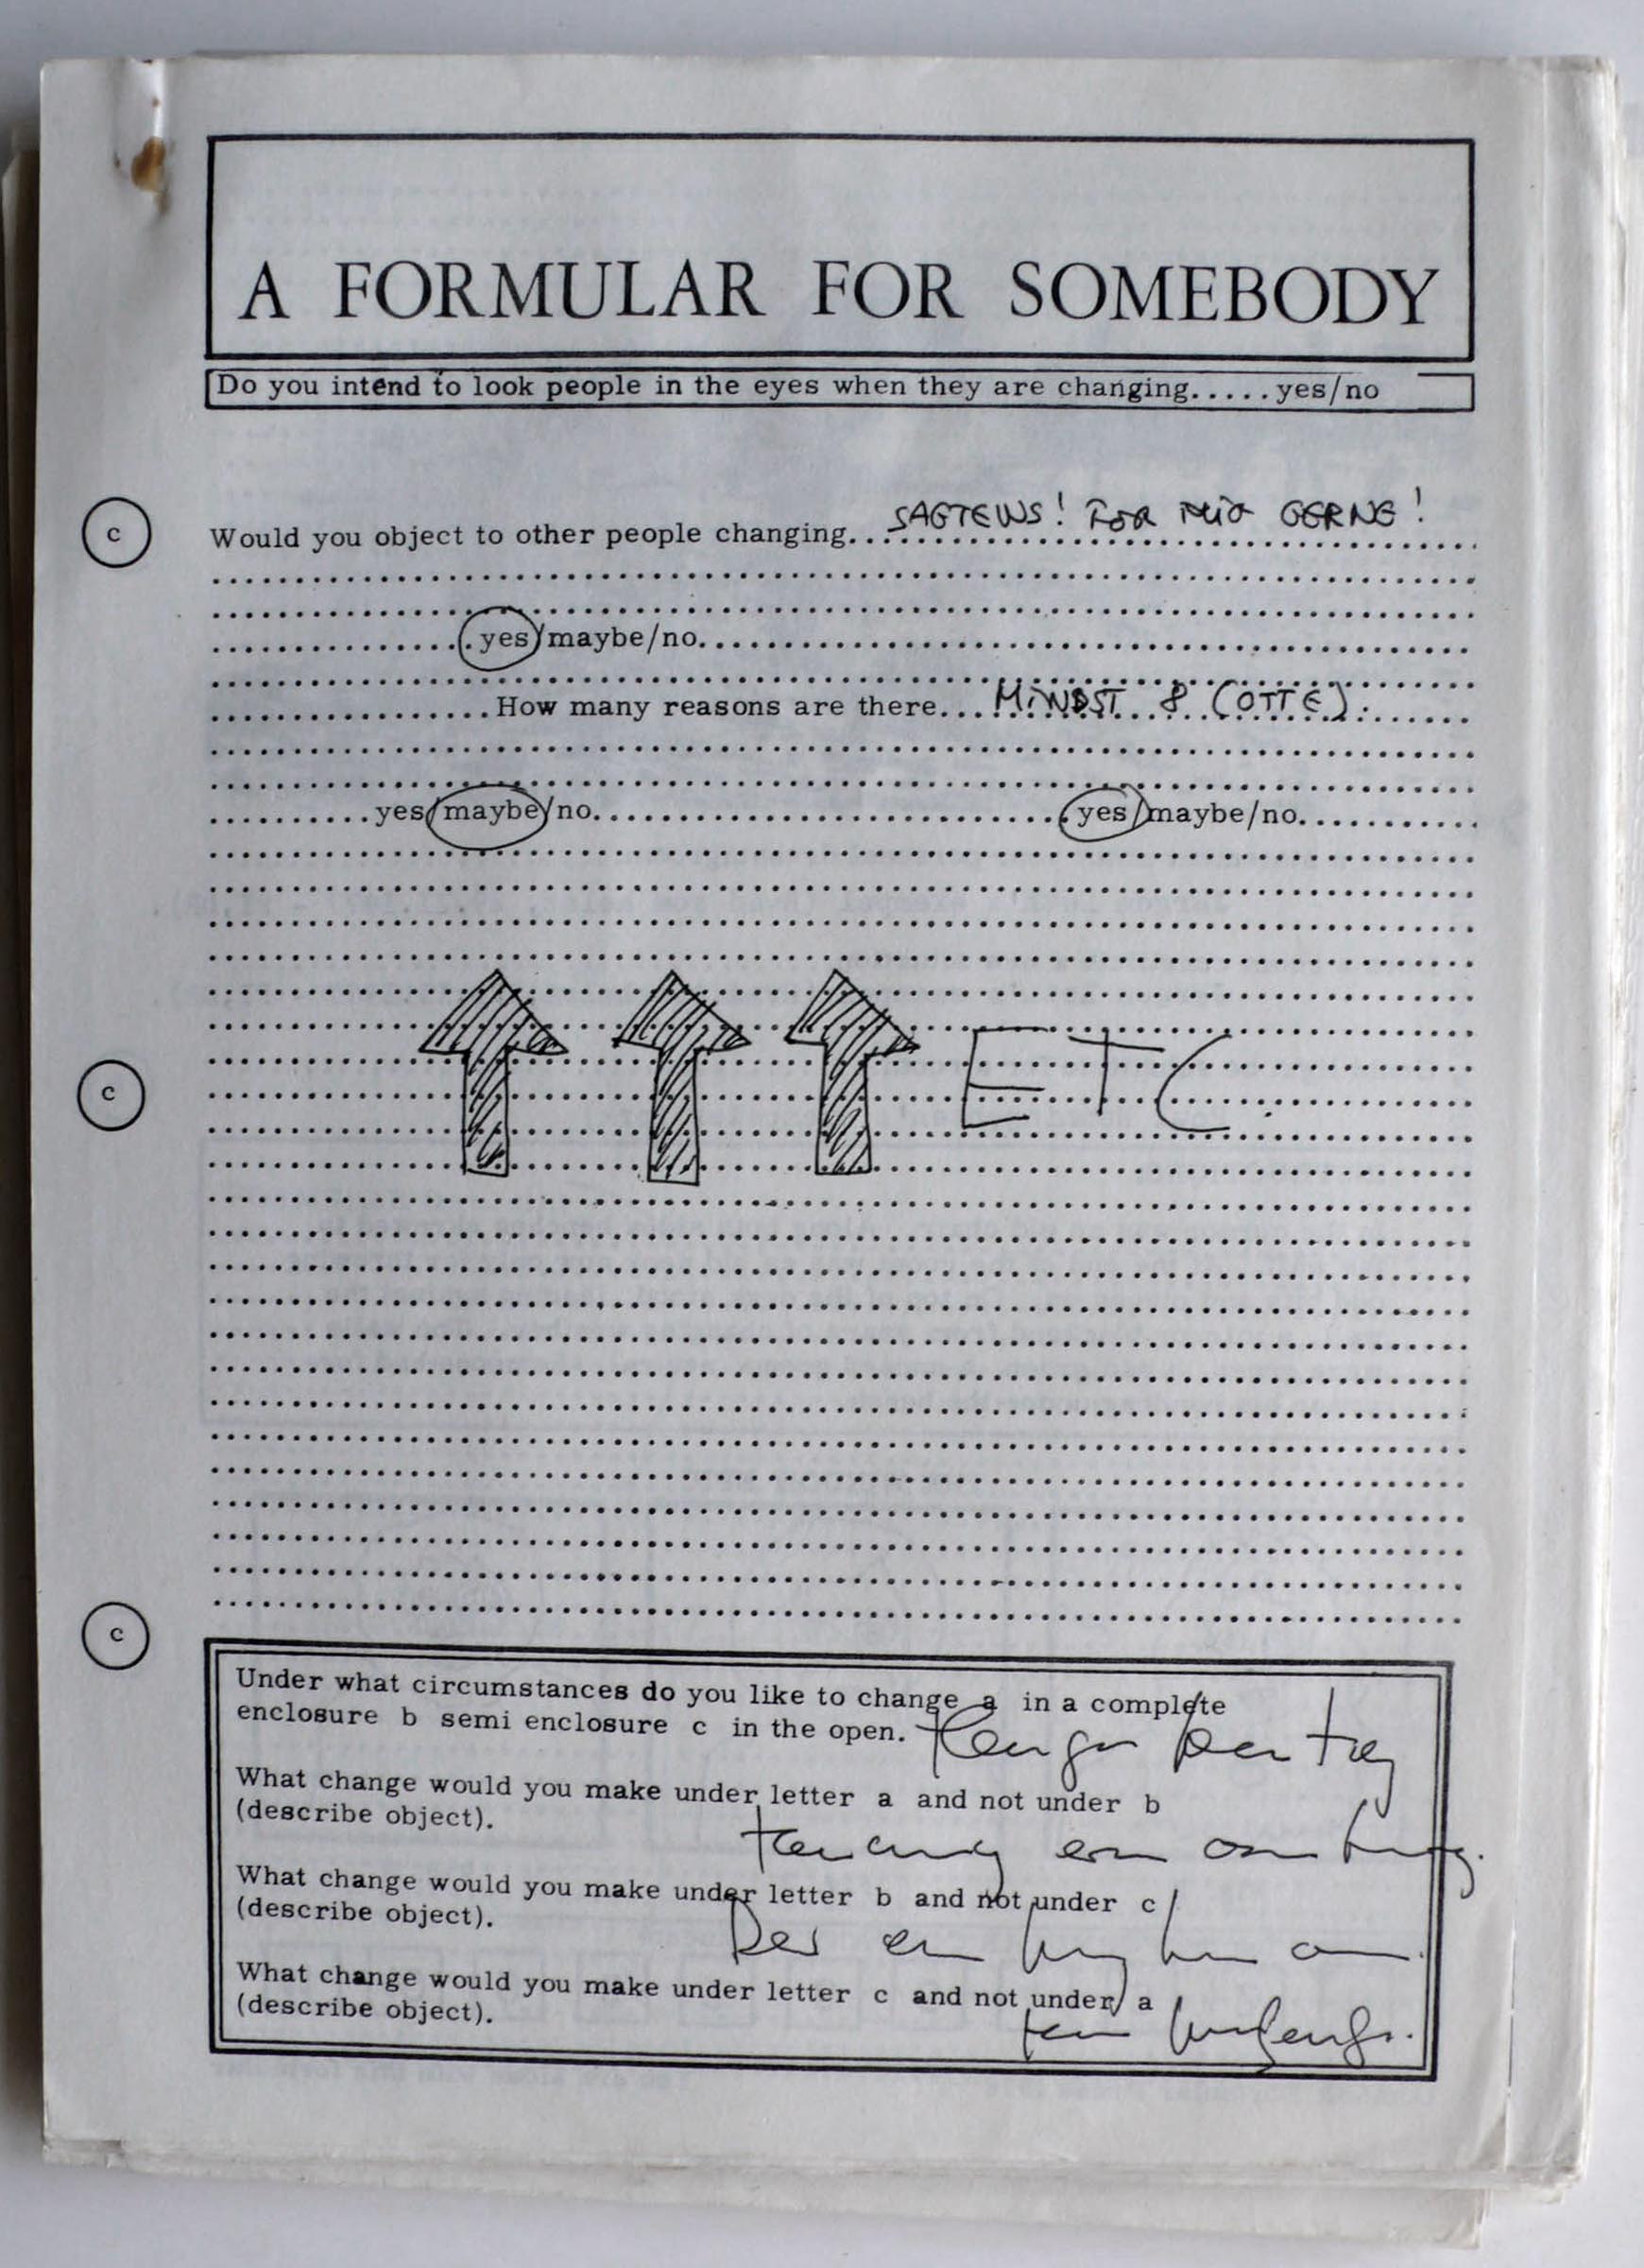 A FORMULAR FOR SOMEBODY
Do you intend to look people in the eyes when they are changing.....yes/no
c
SAGTENS! FOR MIG GERNE!
Would you object to other people changing...
yes/maybe/no
How many reasons are there... MINDST 8 (OTTE).
yes/maybe/no yes/maybe/no
ETC
c
c
Under what circumstances do you like to change a in a complete
enclosure b semi enclosure c in the open.
What change would you make under letter a and not under b
(describe object).
What change would you make under letter b and not under c
(describe object).
What change would you make under letter c and not under a
(describe object).